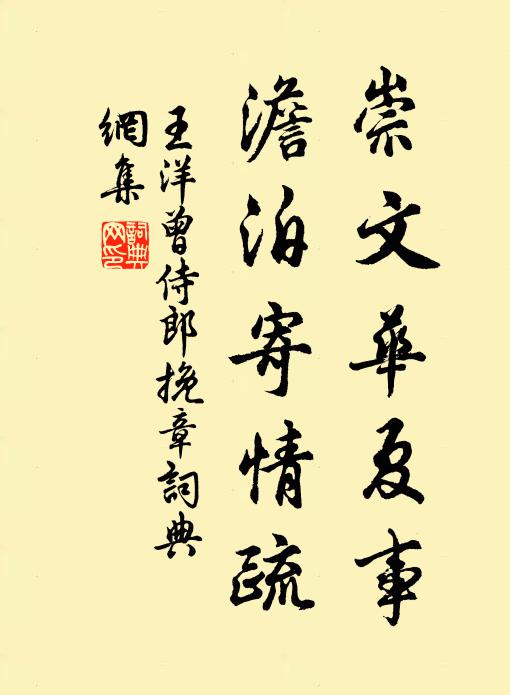 崇文華夏事
澹泊寄情疏
王洋曾侍郎挽章詞典
網集
詞典网印